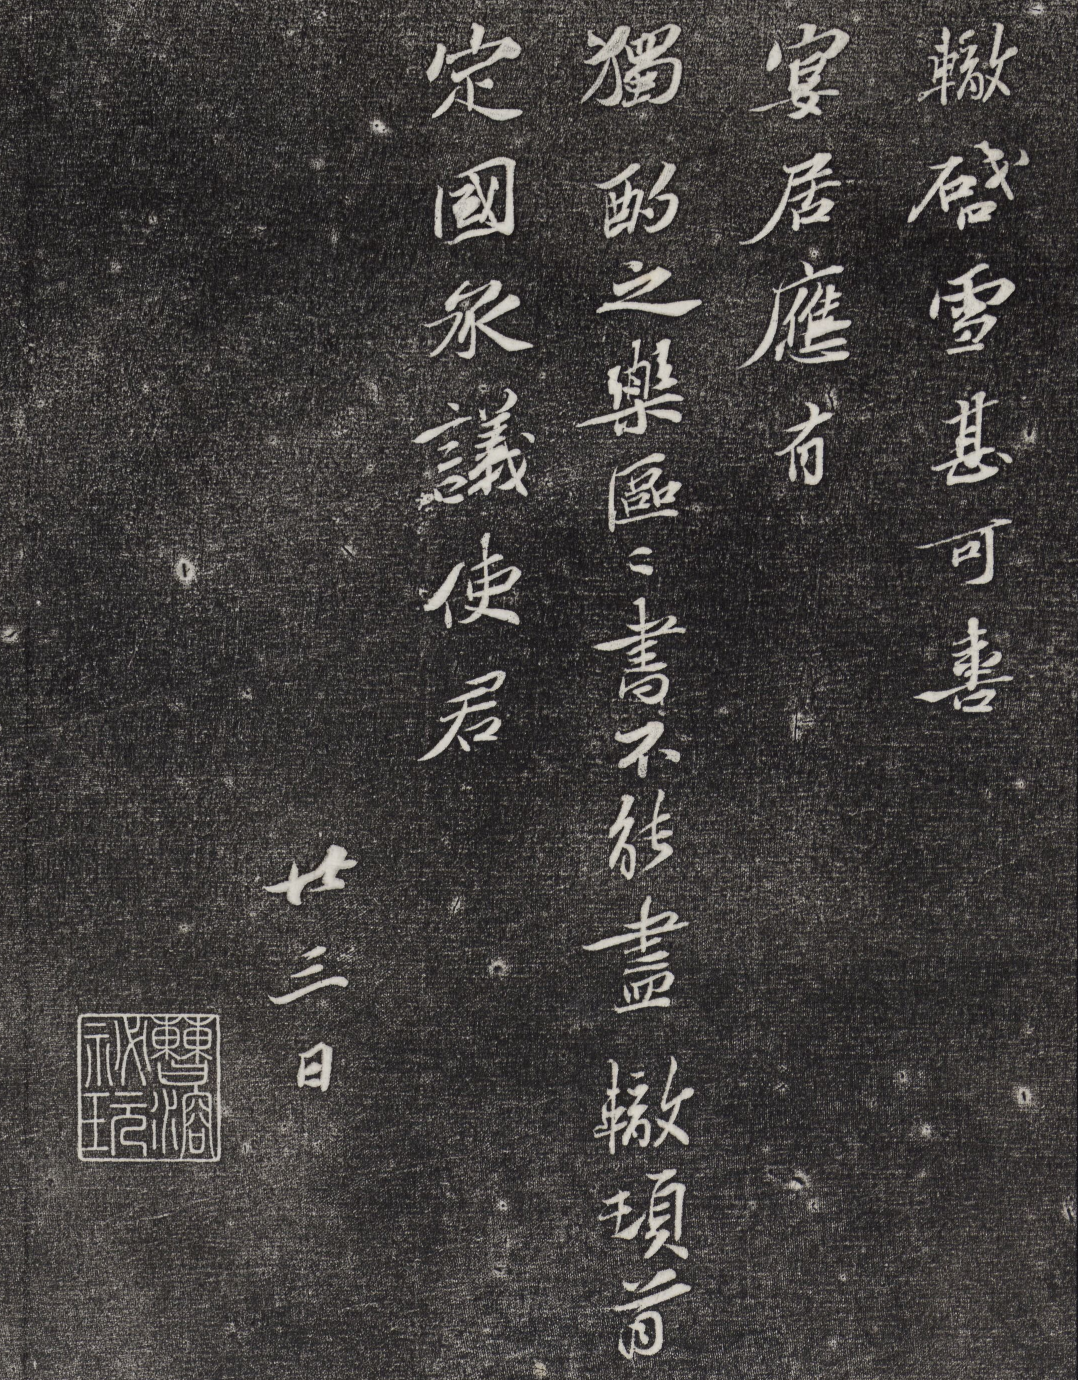 轍啓雪甚可喜
宴居應有
獨酌之樂區〻書不能盡 轍頓首
定國承議使君
廿三日
曹溶
祕玩